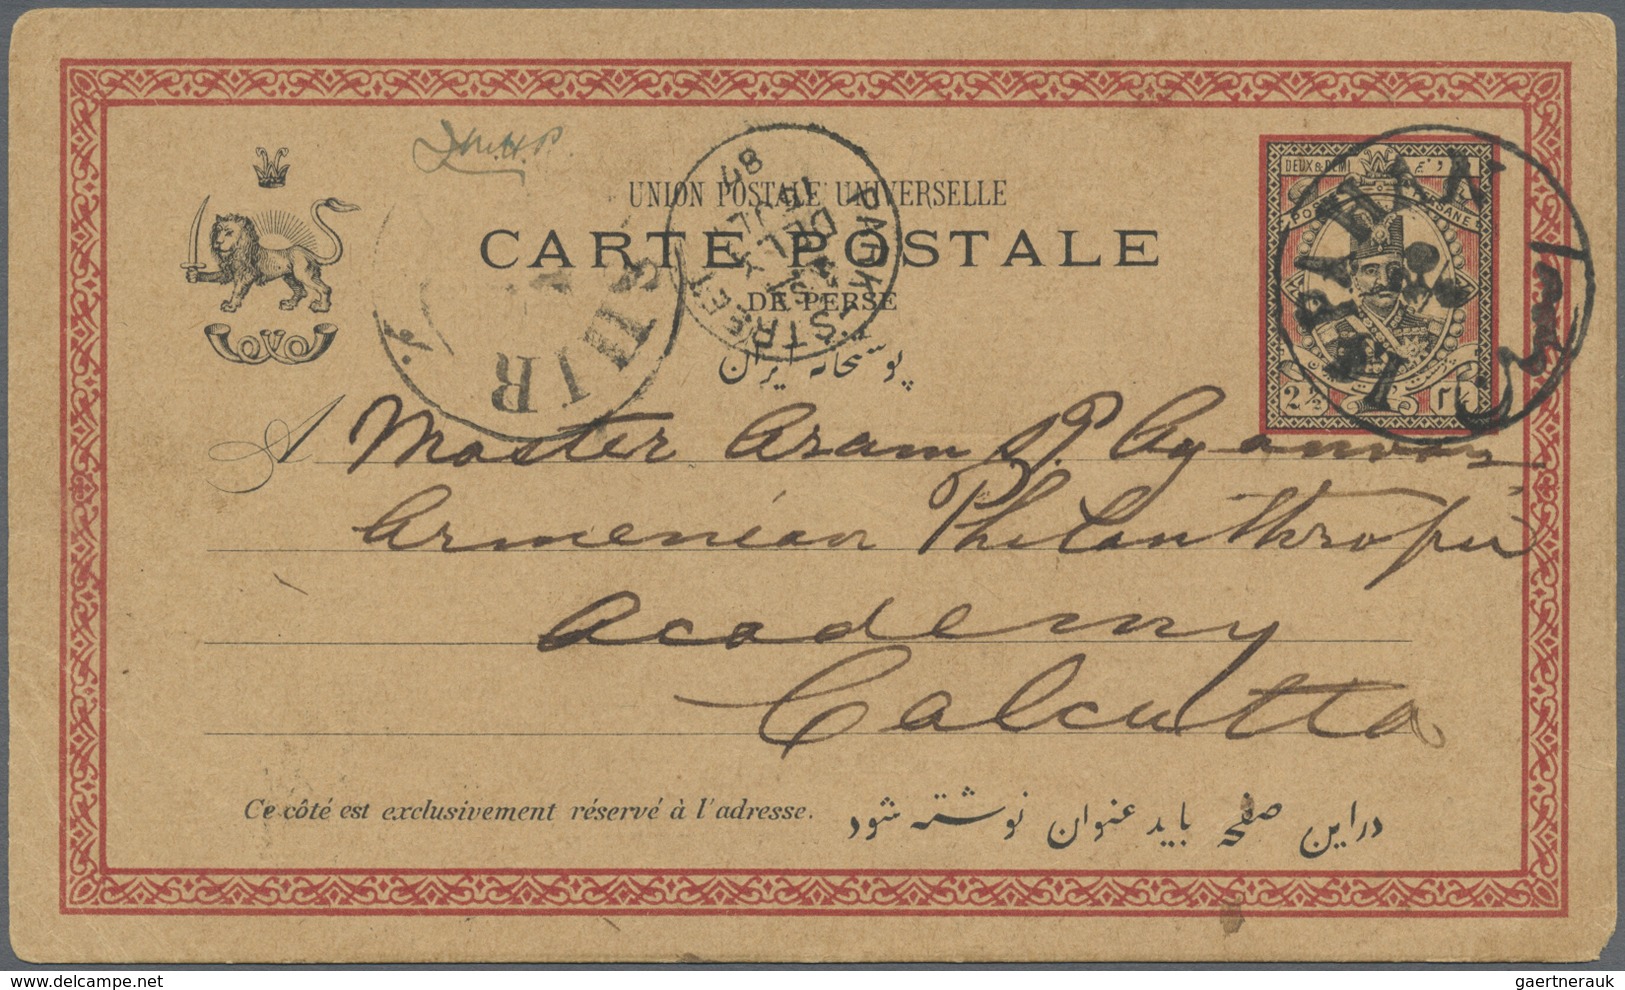 UNION POSTALE UNIVERSELLE
CARTE POSTALE
DE PERSE
پوستخانه ایران
DEUX & DEMI
2½
ISPAHAN
SHIR
PARK STREET
87
A Master Aram P.
Armenian Philanthropic
Academy
Calcutta
Ce côté est exclusivement réservé à l'adresse.
در این صفحه باید عنوان نوشته شود
gaertnerauk